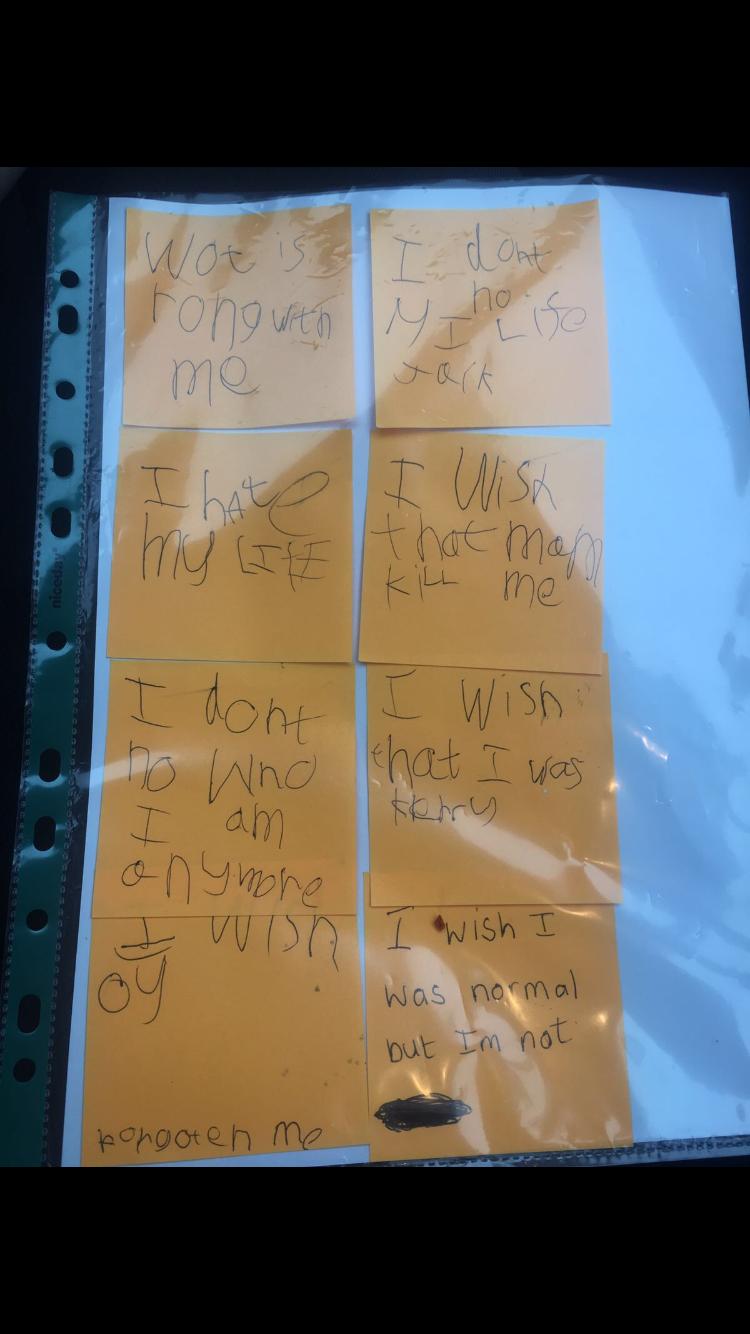 Wot is
rong with
me
I dont
no
MI Life
I hate
my LifE
I Wish
that mam
kill me
I dont
no Who
I am
anymore
I Wish
that I was
I Wish
oy
forgoten me
I wish I
was normal
but Im not
niceday